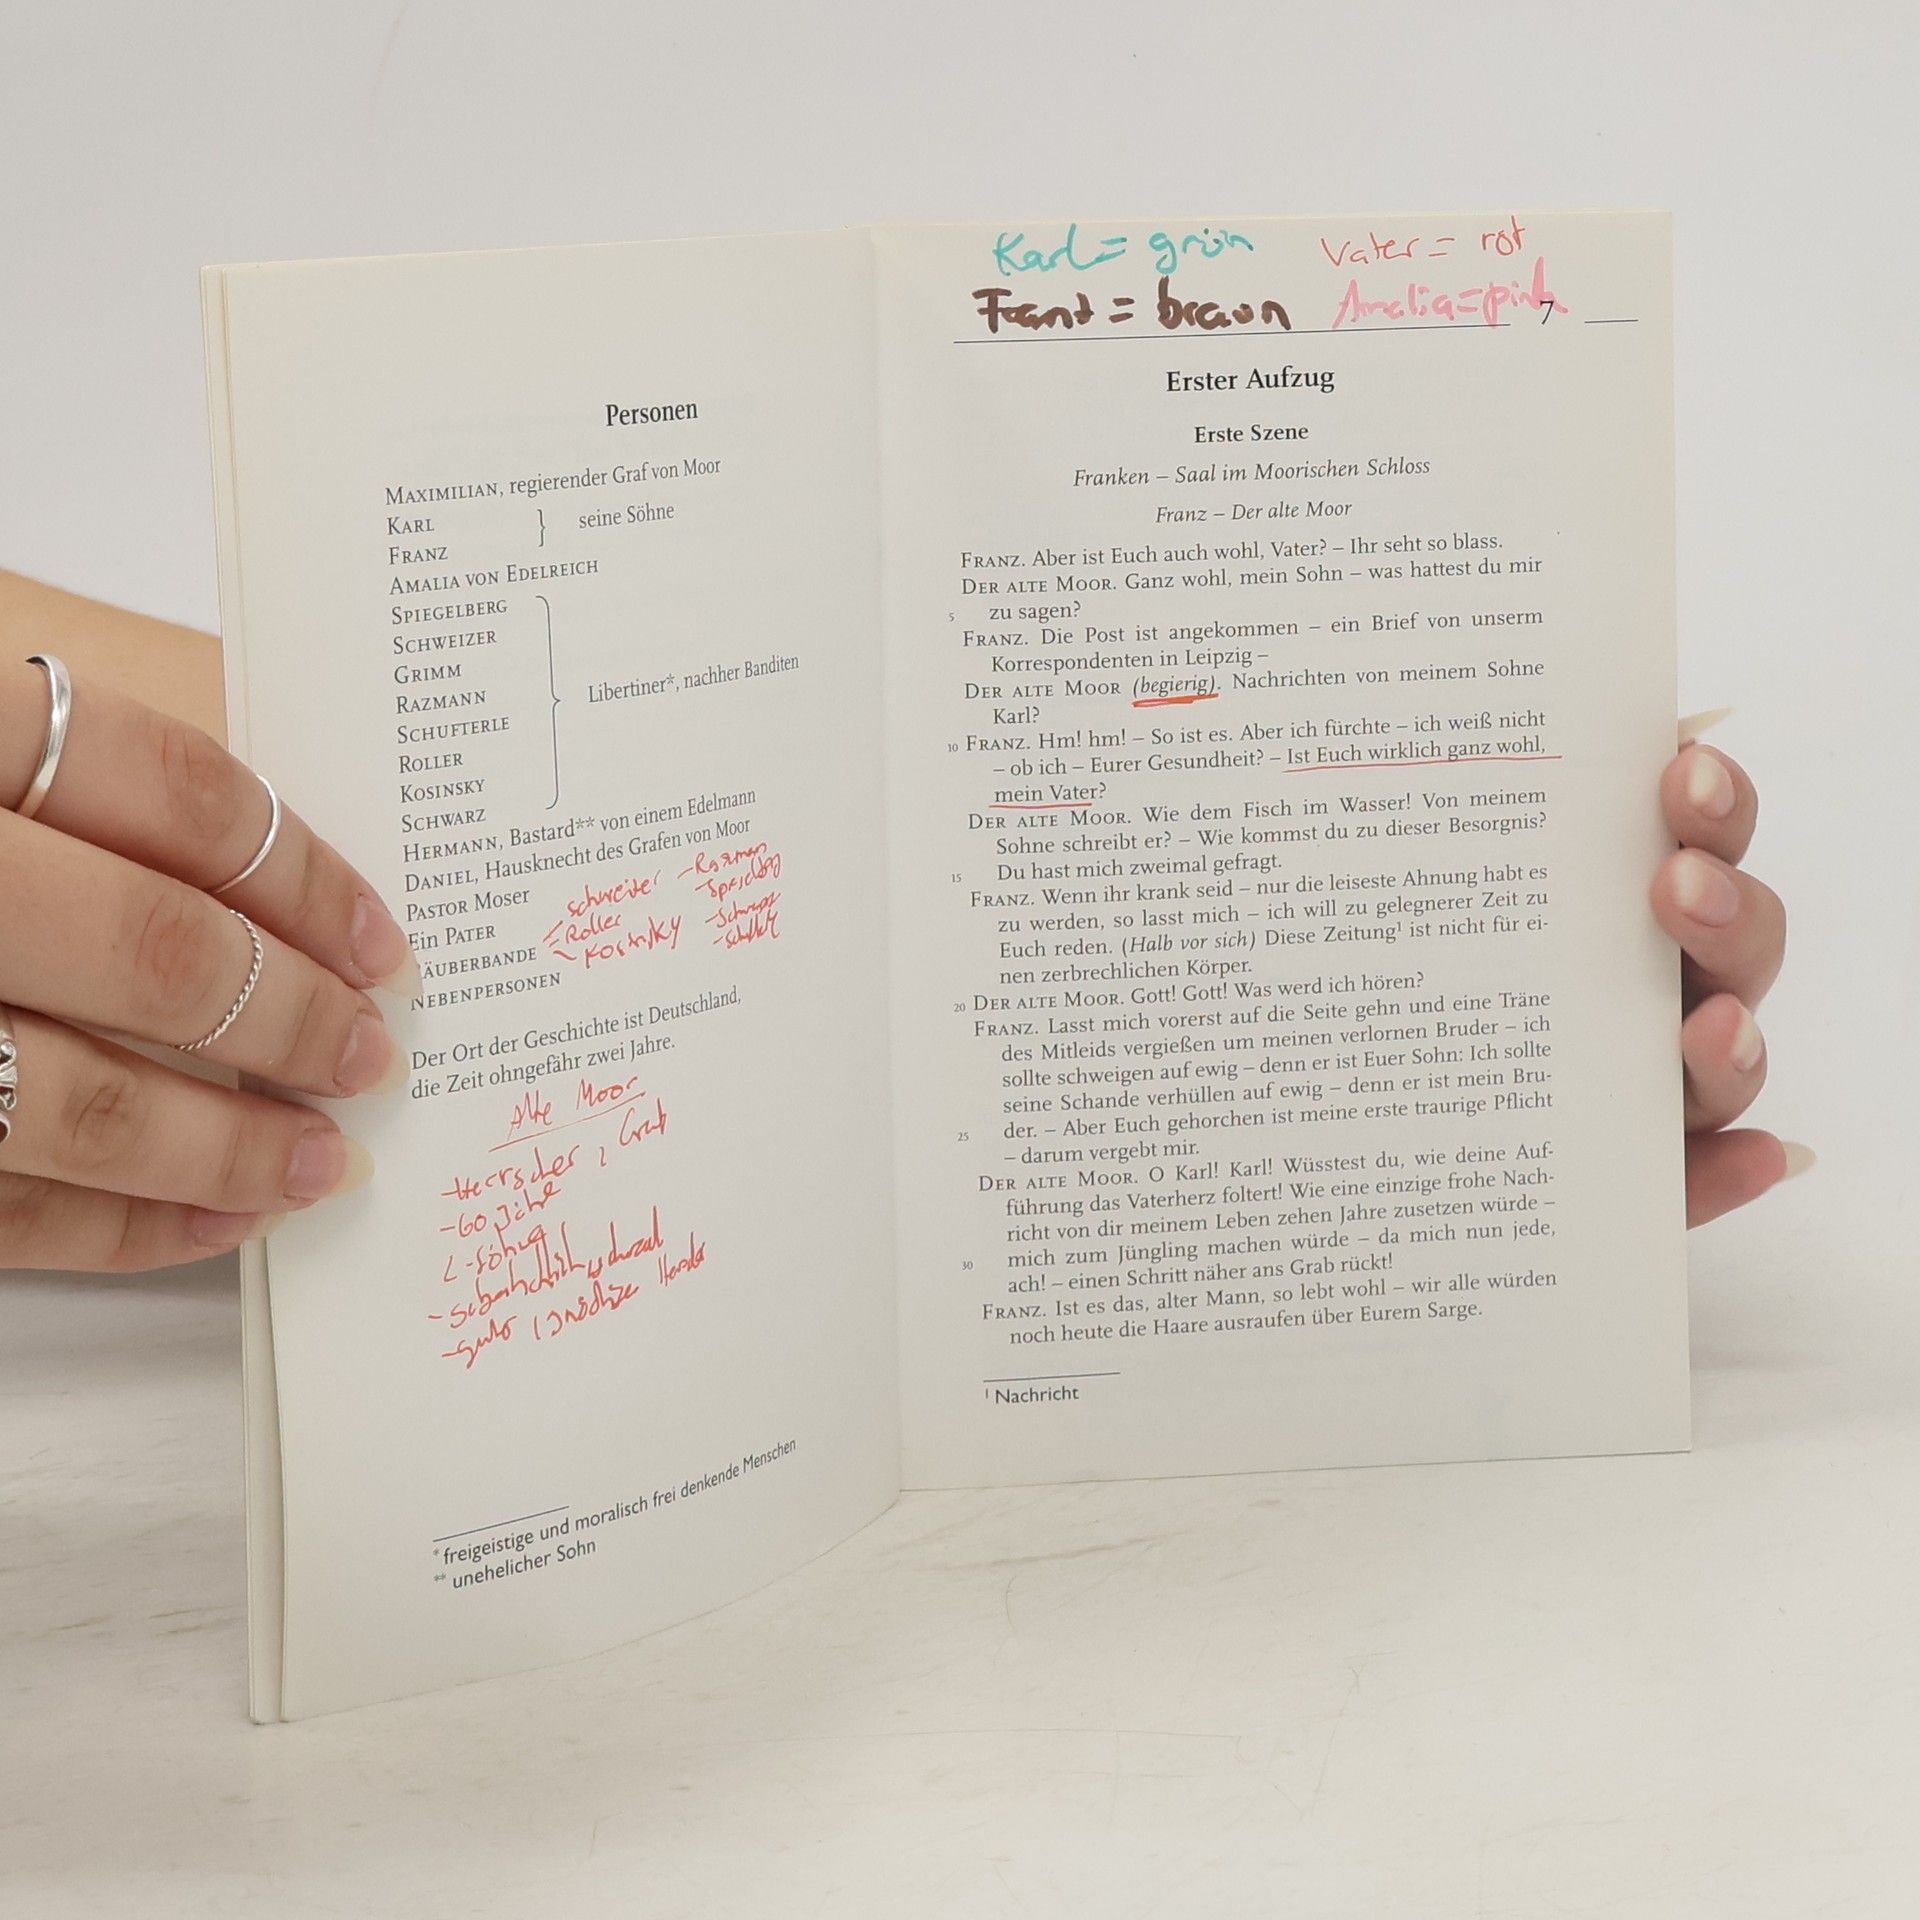 Personen
MAXIMILIAN, regierender Graf von Moor
KARL } seine Söhne
FRANZ
AMALIA VON EDELREICH
SPIEGELBERG
SCHWEIZER
GRIMM
RAZMANN } Libertiner*, nachher Banditen
SCHUFTERLE
ROLLER
KOSINSKY
SCHWARZ
HERMANN, Bastard** von einem Edelmann
DANIEL, Hausknecht des Grafen von Moor
PASTOR MOSER
Ein PATER
ÄUBERBANDE
NEBENPERSONEN
schweiter
Roller
Kosinsky
Der Ort der Geschichte ist Deutschland,
die Zeit ohngefähr zwei Jahre.
Alte Moor
-Herrscher,
-60 Jahre
* freigeistige und moralisch frei denkende Menschen
** unehelicher Sohn
Karl = grün Vater = rot
Franz = braun Amalia = pink
7
Erster Aufzug
Erste Szene
Franken – Saal im Moorischen Schloss
Franz – Der alte Moor
FRANZ. Aber ist Euch auch wohl, Vater? – Ihr seht so blass.
DER ALTE MOOR. Ganz wohl, mein Sohn – was hattest du mir
5 zu sagen?
FRANZ. Die Post ist angekommen – ein Brief von unserm
Korrespondenten in Leipzig –
DER ALTE MOOR (begierig). Nachrichten von meinem Sohne
Karl?
10 FRANZ. Hm! hm! – So ist es. Aber ich fürchte – ich weiß nicht
– ob ich – Eurer Gesundheit? – Ist Euch wirklich ganz wohl,
mein Vater?
DER ALTE MOOR. Wie dem Fisch im Wasser! Von meinem
Sohne schreibt er? – Wie kommst du zu dieser Besorgnis?
15 Du hast mich zweimal gefragt.
FRANZ. Wenn ihr krank seid – nur die leiseste Ahnung habt es
zu werden, so lasst mich – ich will zu gelegnerer Zeit zu
Euch reden. (Halb vor sich) Diese Zeitung¹ ist nicht für ei-
nen zerbrechlichen Körper.
20 DER ALTE MOOR. Gott! Gott! Was werd ich hören?
FRANZ. Lasst mich vorerst auf die Seite gehn und eine Träne
des Mitleids vergießen um meinen verlornen Bruder – ich
sollte schweigen auf ewig – denn er ist Euer Sohn: Ich sollte
seine Schande verhüllen auf ewig – denn er ist mein Bru-
25 der. – Aber Euch gehorchen ist meine erste traurige Pflicht
– darum vergebt mir.
DER ALTE MOOR. O Karl! Karl! Wüsstest du, wie deine Auf-
führung das Vaterherz foltert! Wie eine einzige frohe Nach-
richt von dir meinem Leben zehen Jahre zusetzen würde –
30 mich zum Jüngling machen würde – da mich nun jede,
ach! – einen Schritt näher ans Grab rückt!
FRANZ. Ist es das, alter Mann, so lebt wohl – wir alle würden
noch heute die Haare ausraufen über Eurem Sarge.
¹ Nachricht